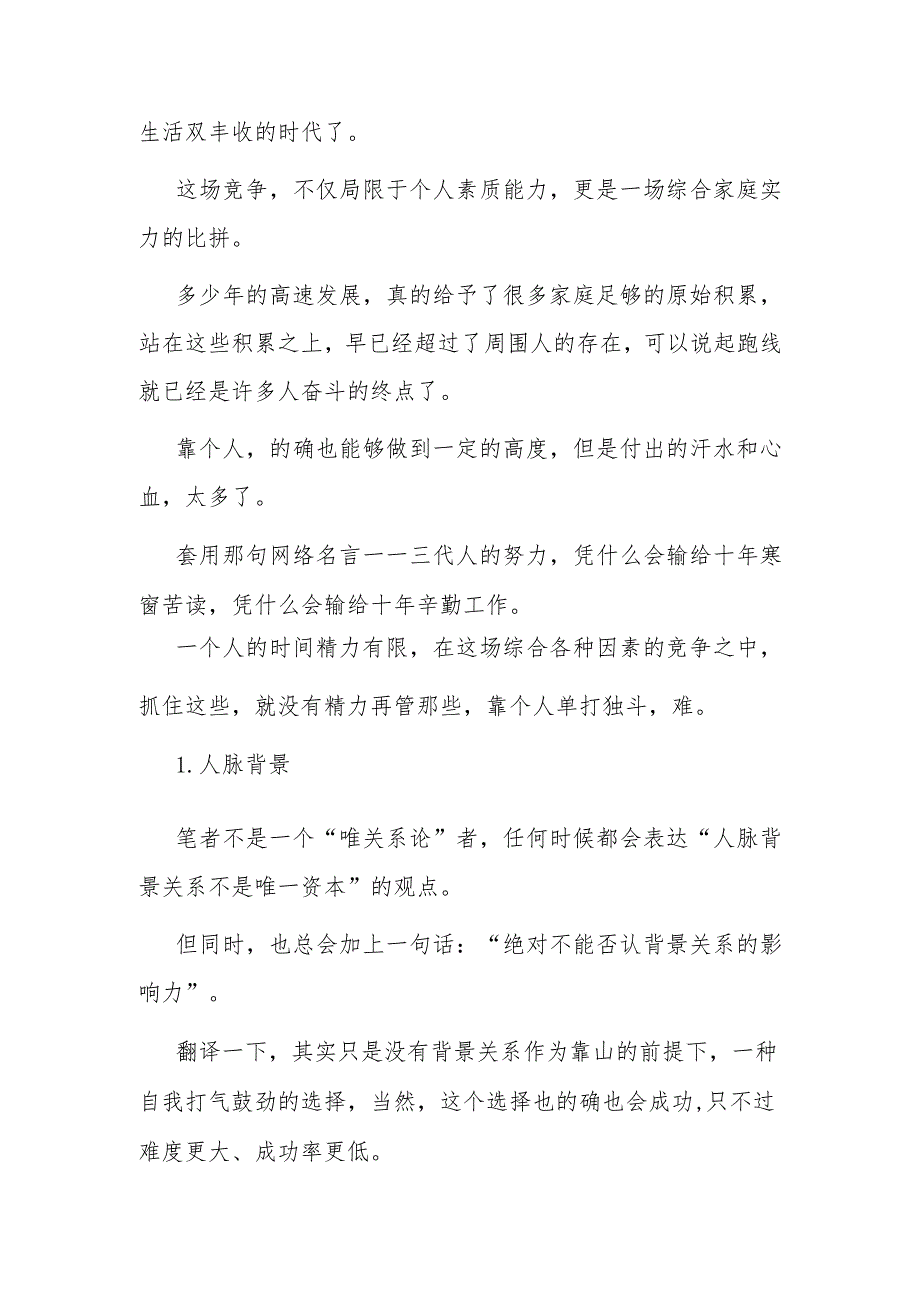 生活双丰收的时代了。
这场竞争，不仅局限于个人素质能力，更是一场综合家庭实
力的比拼。
多少年的高速发展，真的给予了很多家庭足够的原始积累，
站在这些积累之上，早已经超过了周围人的存在，可以说起跑线
就已经是许多人奋斗的终点了。
靠个人，的确也能够做到一定的高度，但是付出的汗水和心
血，太多了。
套用那句网络名言一一三代人的努力，凭什么会输给十年寒
窗苦读，凭什么会输给十年辛勤工作。
一个人的时间精力有限，在这场综合各种因素的竞争之中，
抓住这些，就没有精力再管那些，靠个人单打独斗，难。
1.人脉背景
笔者不是一个“唯关系论”者，任何时候都会表达“人脉背
景关系不是唯一资本”的观点。
但同时，也总会加上一句话：“绝对不能否认背景关系的影
响力”。
翻译一下，其实只是没有背景关系作为靠山的前提下，一种
自我打气鼓劲的选择，当然，这个选择也的确也会成功,只不过
难度更大、成功率更低。